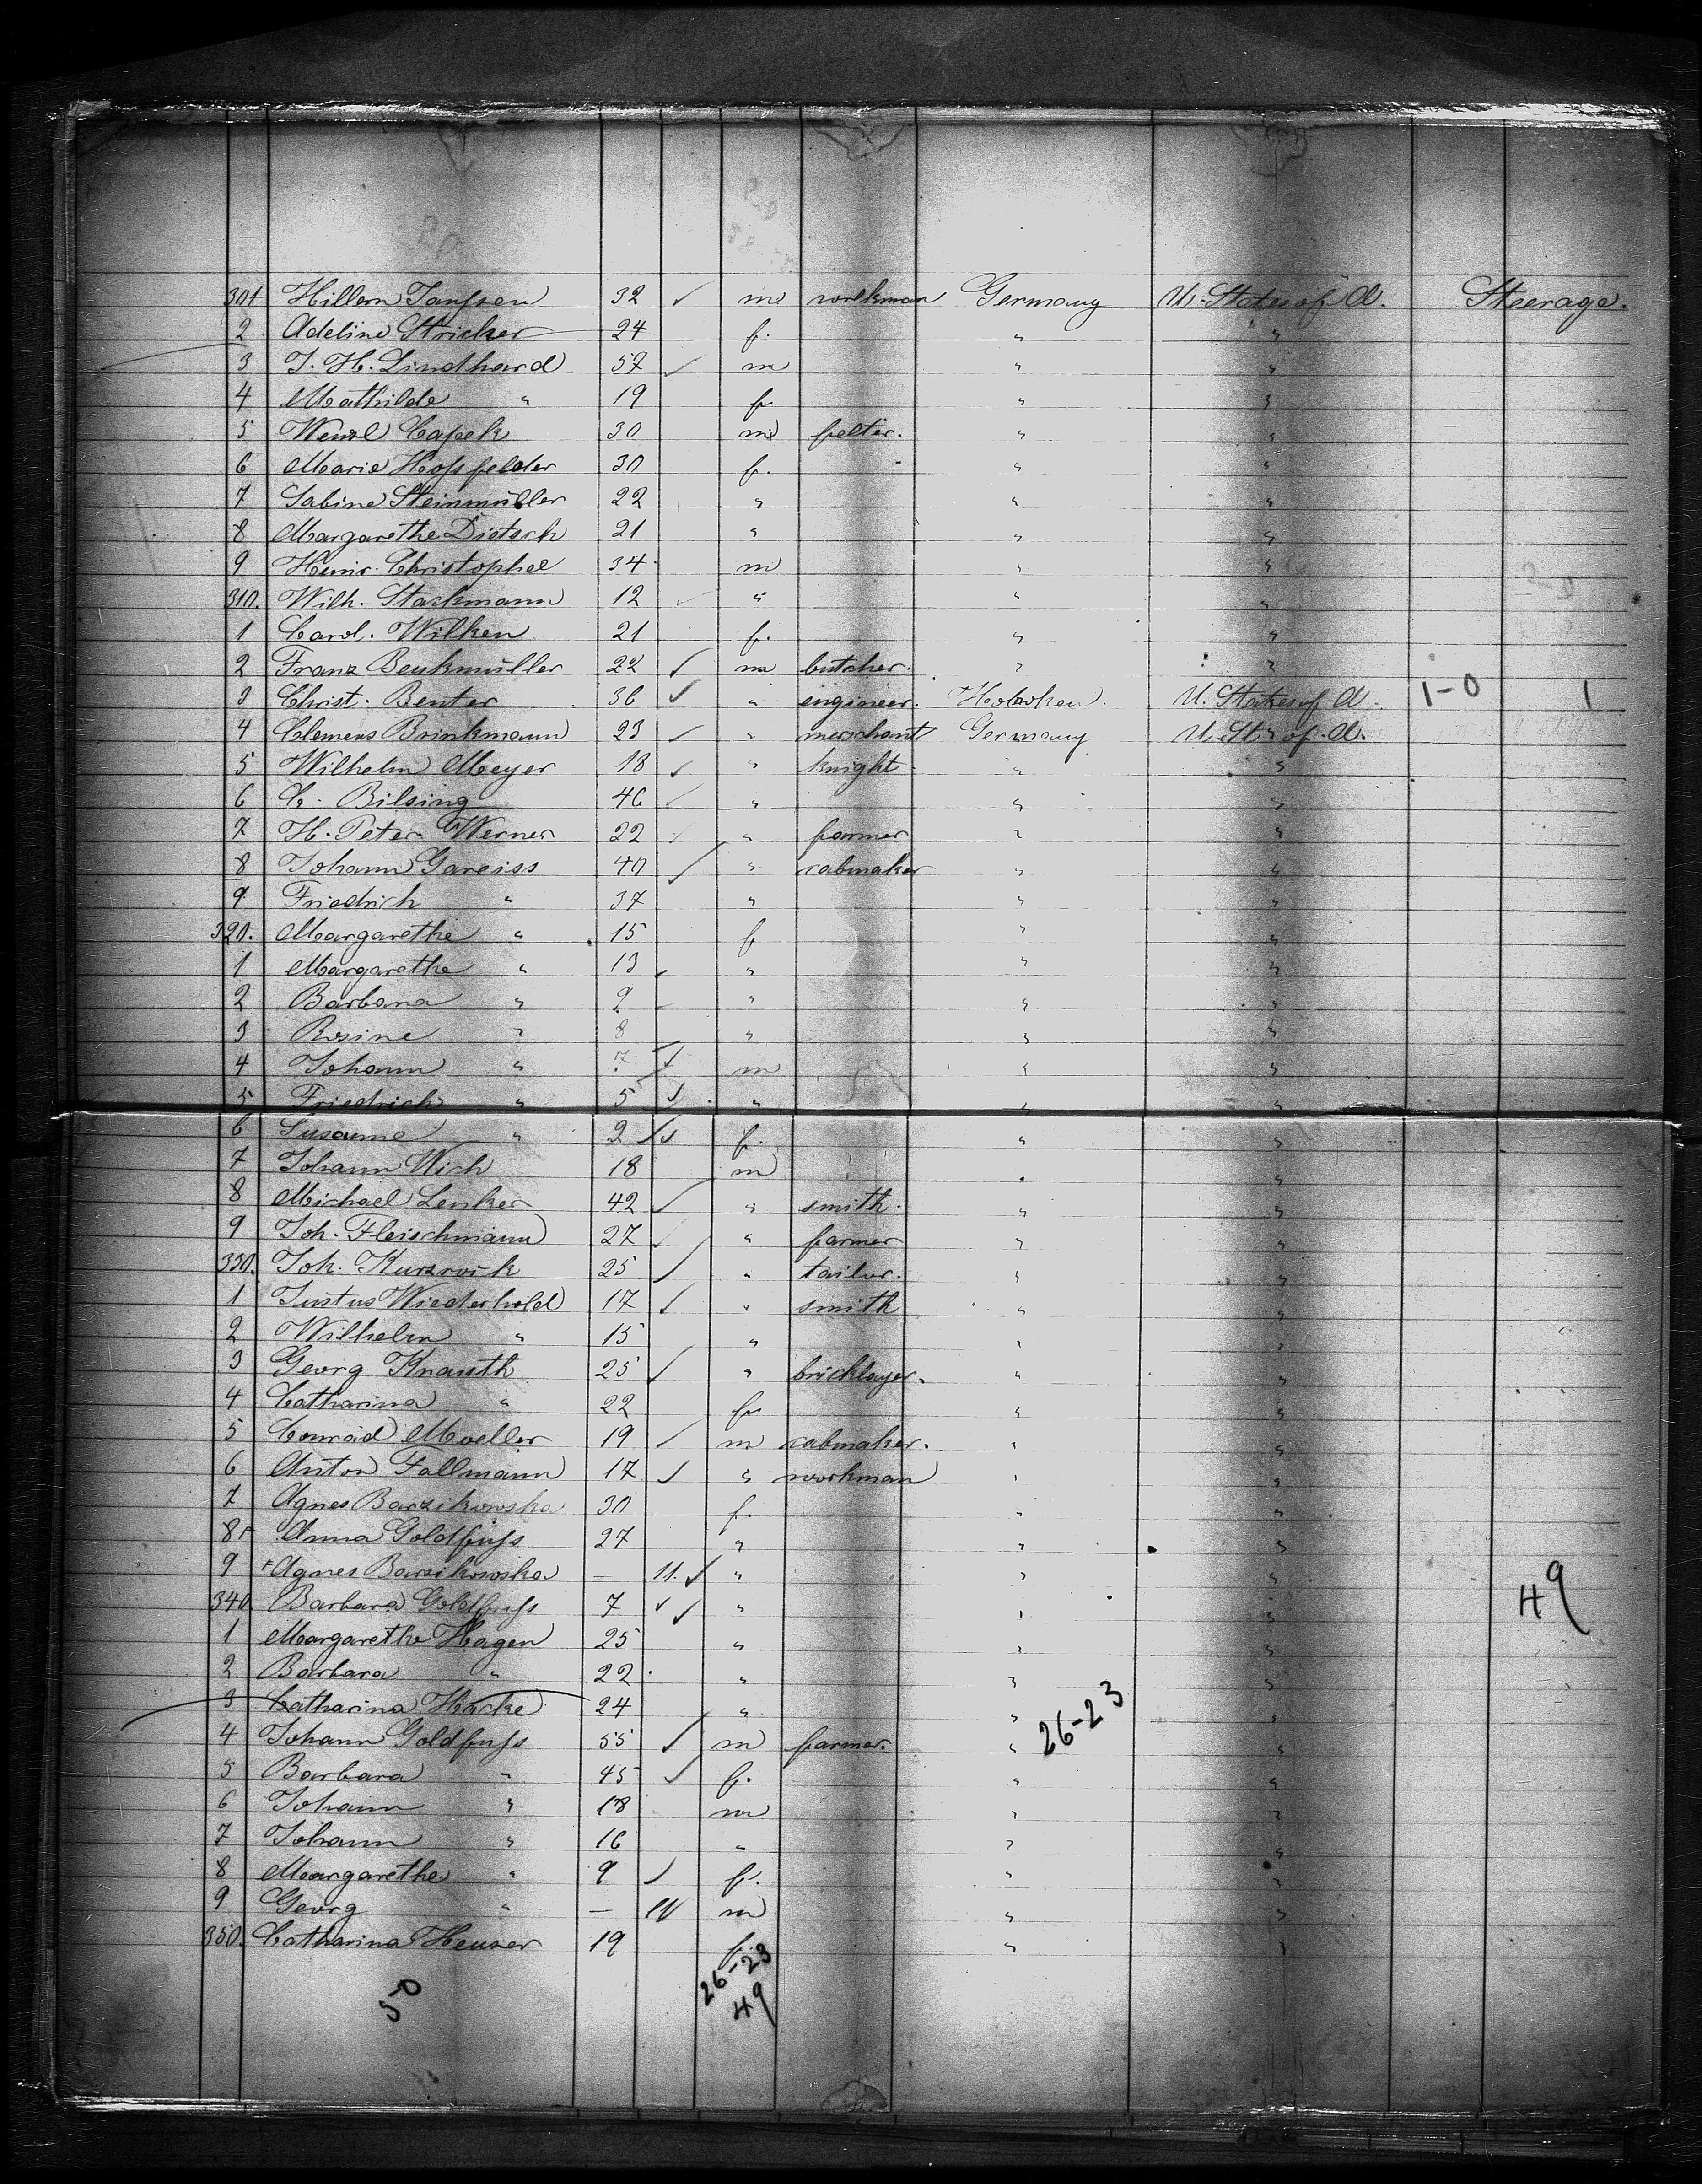 301 Hillern Janssen 32 ✓ m workman Germany U. States of A. Steerage.
2 Adeline Stricker 24 f. " "
3 J. H. Lindhard 57 ✓ m " "
4 Mathilde " 19 f. " "
5 Wenzl Capek 30 m pelter. " "
6 Marie Hossfelder 30 f. " "
7 Sabine Steinmüller 22 " " "
8 Margarethe Dietsch 21 " " "
9 Heinr. Christophel 34 m " "
310. Wilh. Stackmann 12 ✓ " " "
1 Carol. Wilken 21 f. " "
2 Franz Beukmüller 22 ✓ m butcher. " "
3 Christ. Benter 36 ✓ " engineer. Hoboken. U. States of A. 1-0 1
4 Clemens Brinkmann 23 ✓ " merschant Germany U. St. of A.
5 Wilhelm Meyer 18 ✓ " knight " "
6 C. Bilsing 46 ✓ " " "
7 H. Peter Werner 22 ✓ " farmer " "
8 Johann Gareiss 40 ✓ " cabmaker " "
9 Friedrich " 37 " " "
320. Margarethe " 15 f " "
1 Margarethe " 13 " " "
2 Barbara " 9 " " "
3 Rosine " 8 " " "
4 Johann " 7 ✓ m " "
5 Friedrich " 5 ✓ " " "
6 Susanne " 2 ✓✓ f. " "
7 Johann Wich 18 m " "
8 Michael Lenker 42 ✓ " smith. " "
9 Joh. Fleischmann 27 ✓ " farmer " "
330. Joh. Kurzrock 25 ✓ " tailor. " "
1 Justus Wiederhold 17 ✓ " smith " "
2 Wilhelm " 15 " " "
3 Georg Knauth 25 ✓ " bricklayer. " "
4 Catharina " 22 f. " "
5 Conrad Moeller 19 ✓ m cabmaker. " "
6 Anton Fallmann 17 ✓ " workman " "
7 Agnes Barzikowska 30 f. " "
8 Anna Goldfuss 27 " " "
9 Agnes Barzikowska — 11. ✓ " " "
340 Barbara Goldfuss 7 ✓✓ " " " 49
1 Margarethe Hagen 25 " " "
2 Barbara " 22 " " "
3 Catharina Hacke 24 " " "
26-23
4 Johann Goldfuss 55 ✓ m farmer. " "
5 Barbara " 45 ✓ f. " "
6 Johann " 18 m " "
7 Johann " 16 " " "
8 Margarethe " 9 ✓ f. " "
9 Georg " — m " "
350. Catharina Heuser 19 f. " "
50 26-23
49